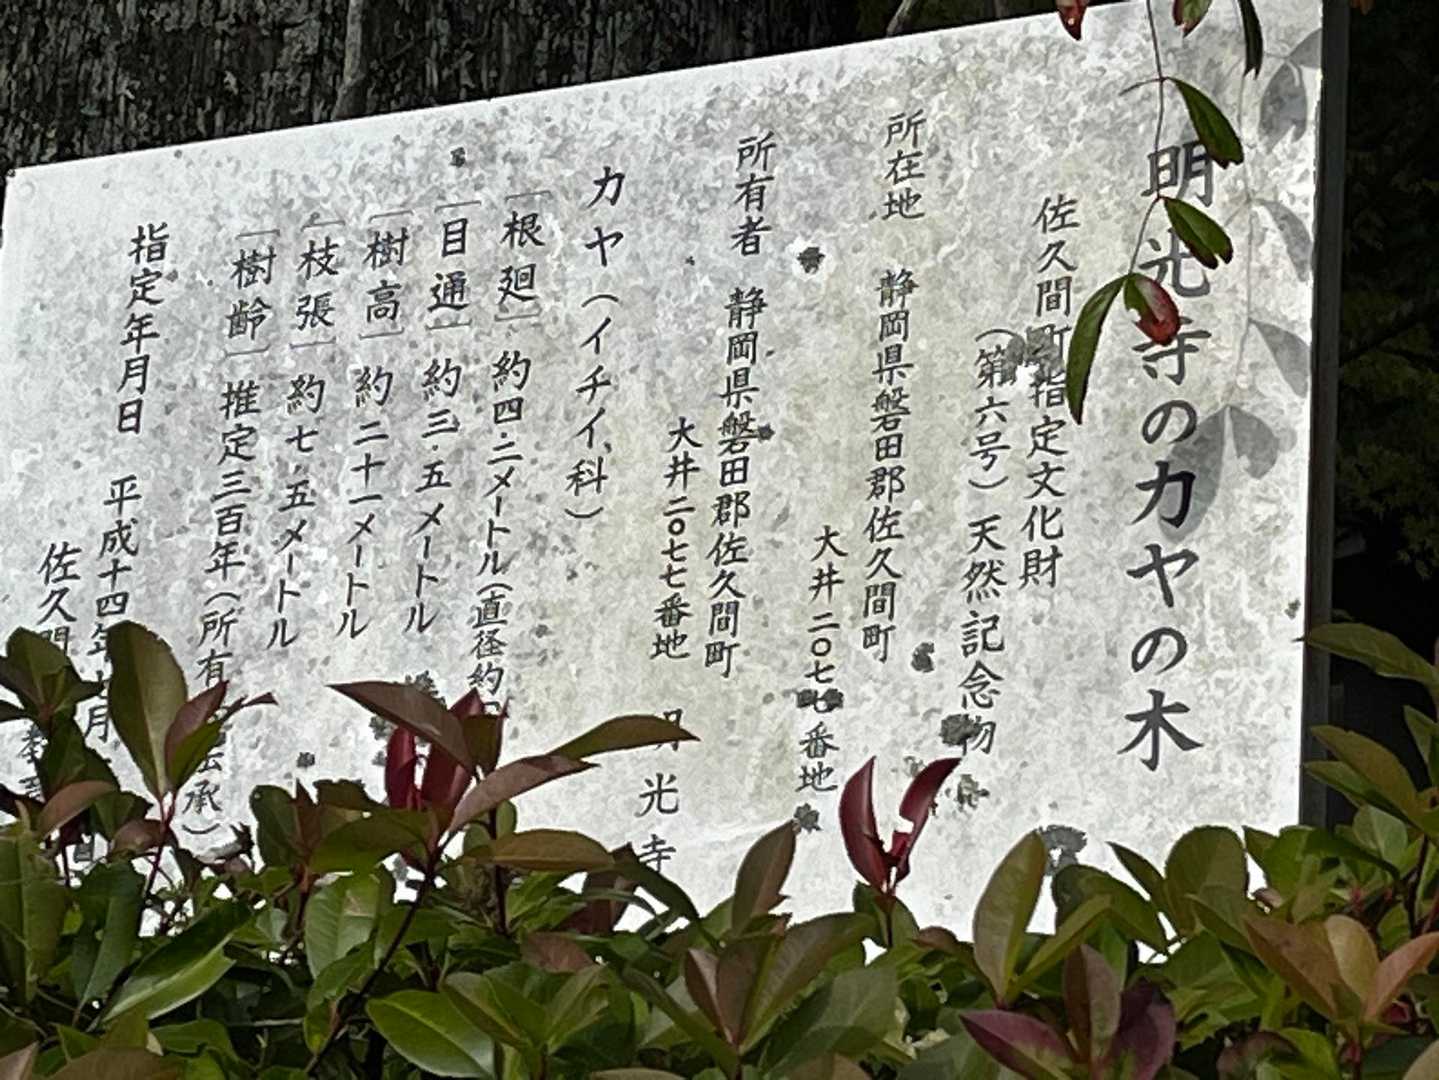 明光寺のカヤの木
佐久間町指定文化財
（第六号）天然記念物
所在地　静岡県磐田郡佐久間町
大井二〇七七番地
所有者　静岡県磐田郡佐久間町
大井二〇七七番地
明光寺
カヤ（イチイ科）
［根廻］約四・二メートル（直径約
［目通］約三・五メートル
［樹高］約二十一メートル
［枝張］約七・五メートル
［樹齢］推定三百年（所有 伝承）
指定年月日　平成十四年 月
佐久間